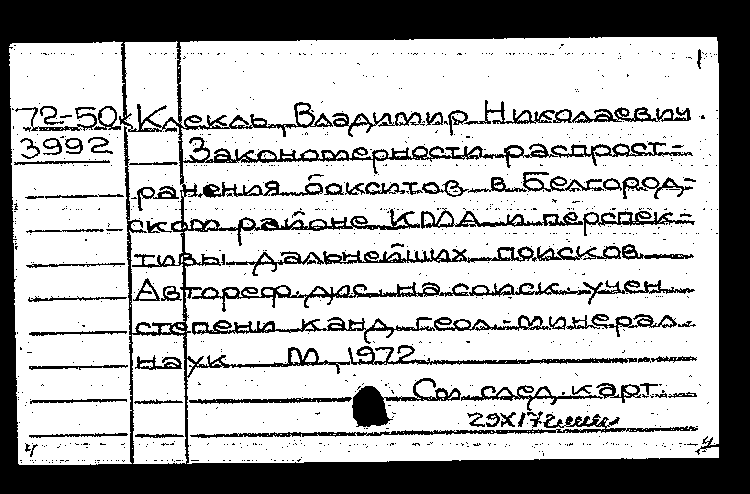 1
72-50к Клекль, Владимир Николаевич.
3992 Закономерности распрост-
ранения бокситов в Белгород-
ском районе КМА и перспек-
тивы дальнейших поисков.
Автореф. дис. на соиск. учен.
степени канд. геол.-минерал.
наук М., 1972.
См. след. карт.
29X172
ч ч